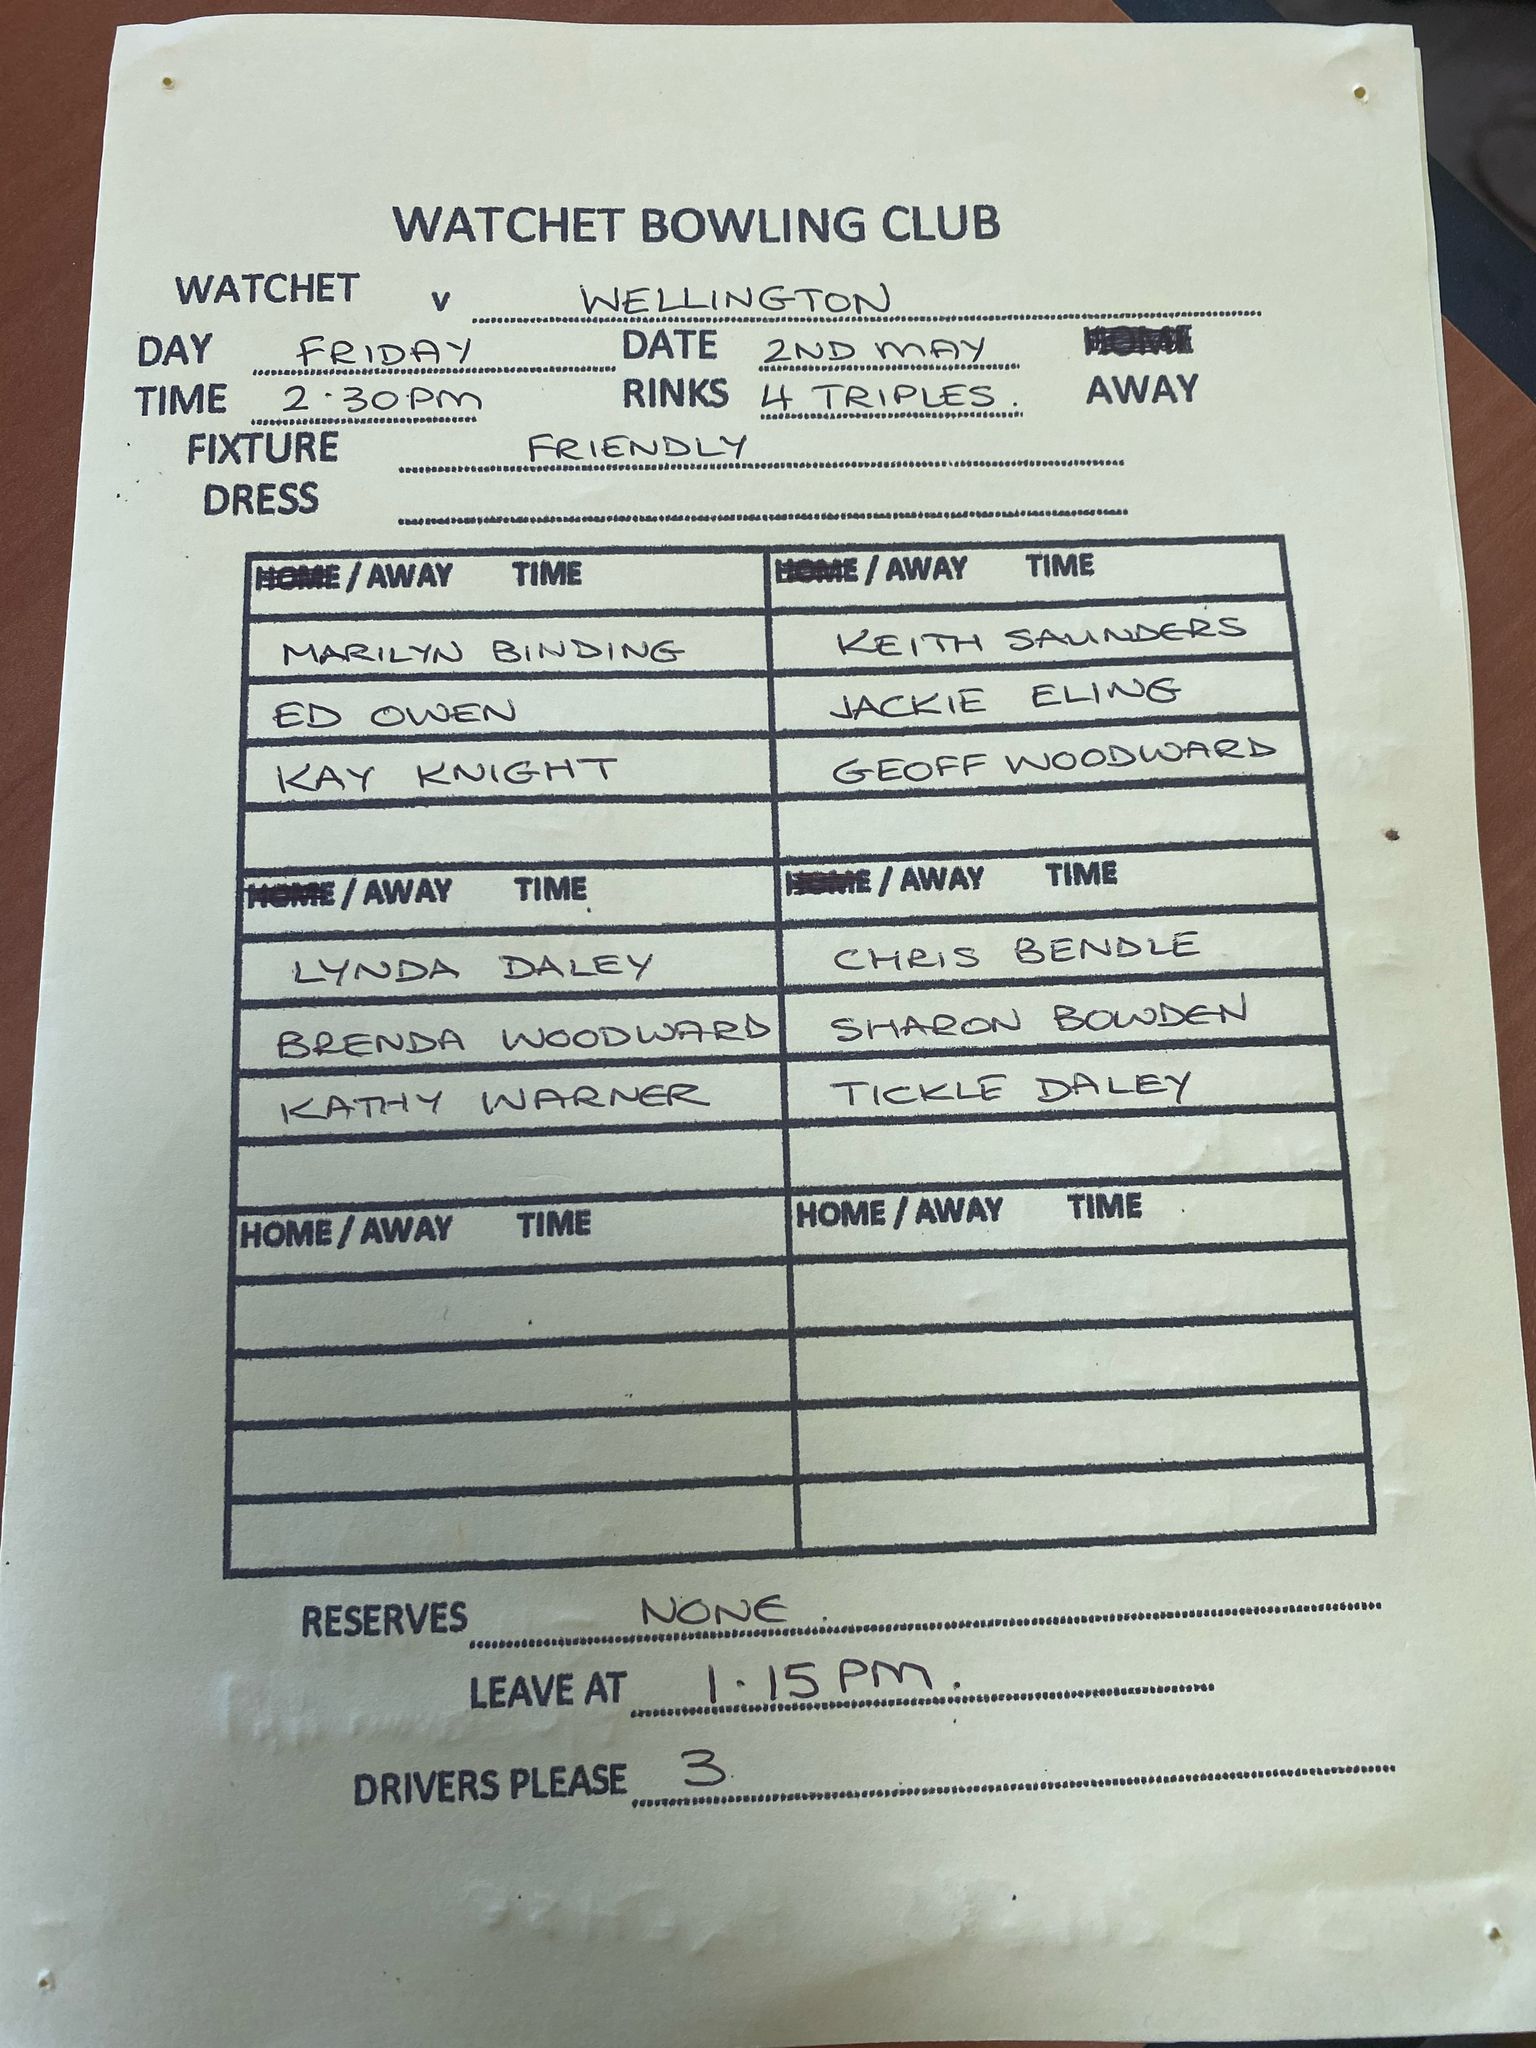 WATCHET BOWLING CLUB
WATCHET v WELLINGTON
DAY FRIDAY DATE 2ND MAY HOME
TIME 2.30PM RINKS 4 TRIPLES. AWAY
FIXTURE FRIENDLY
DRESS
HOME / AWAY TIME HOME / AWAY TIME
MARILYN BINDING KEITH SAUNDERS
ED OWEN JACKIE ELING
KAY KNIGHT GEOFF WOODWARD
HOME / AWAY TIME HOME / AWAY TIME
LYNDA DALEY CHRIS BENDLE
BRENDA WOODWARD SHARON BOWDEN
KATHY WARNER TICKLE DALEY
HOME / AWAY TIME HOME / AWAY TIME
RESERVES NONE.
LEAVE AT 1.15PM.
DRIVERS PLEASE 3